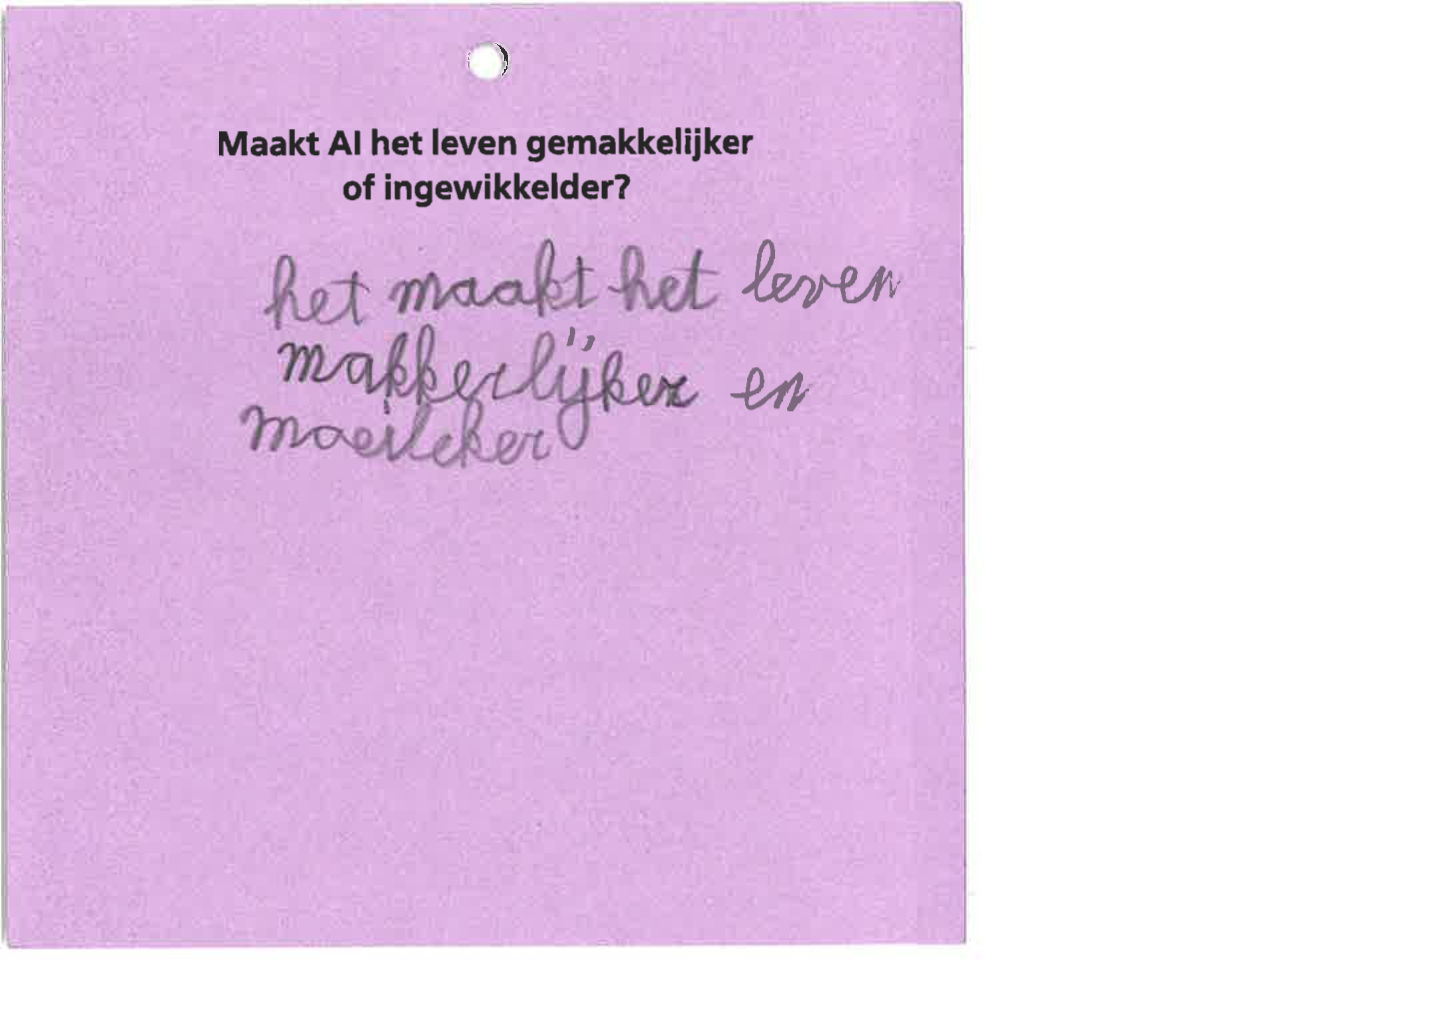 Maakt AI het leven gemakkelijker
of ingewikkelder?
het maakt het leven
makkerlijker en
moeileker